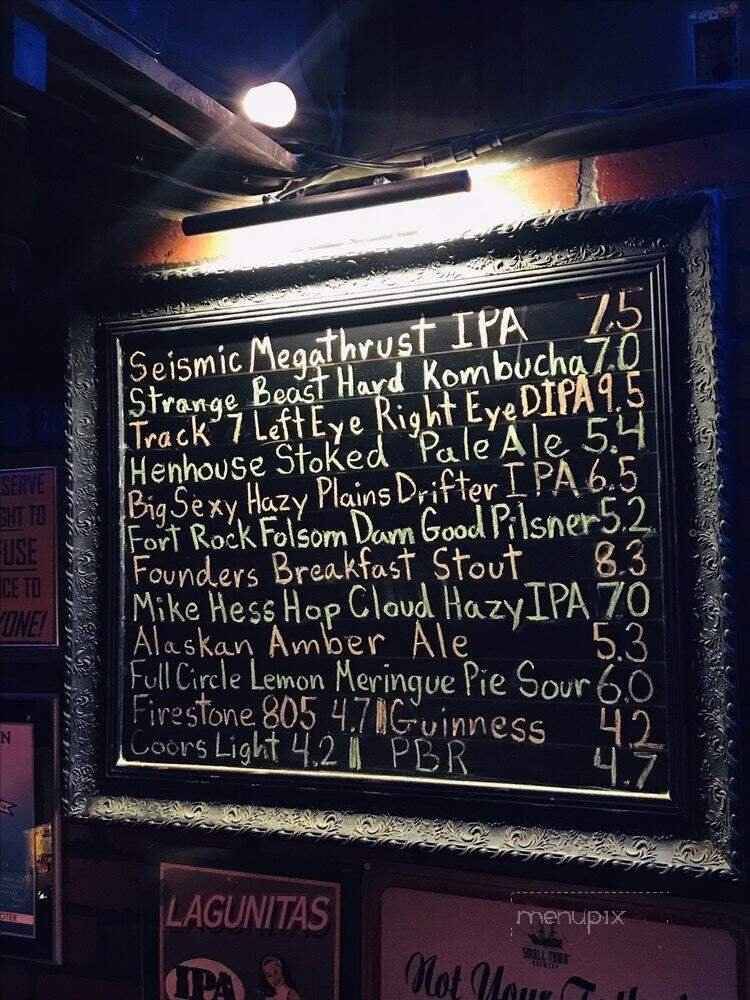 Seismic Megathrust IPA 7.5
Strange Beast Hard Kombucha 7.0
Track 7 Left Eye Right Eye DIPA 9.5
Henhouse Stoked Pale Ale 5.4
Big Sexy Hazy Plains Drifter IPA 6.5
Fort Rock Folsom Dam Good Pilsner 5.2
Founders Breakfast Stout 8.3
Mike Hess Hop Cloud Hazy IPA 70
Alaskan Amber Ale 5.3
Full Circle Lemon Meringue Pie Sour 6.0
Firestone 805 4.7 || Guinness 4.2
Coors Light 4.2 || PBR 4.7
SERVE
GHT TO
FUSE
CE TO
YONE!
LAGUNITAS
IPA
menupix
SMALL TOWN
BREWERY
Not Your